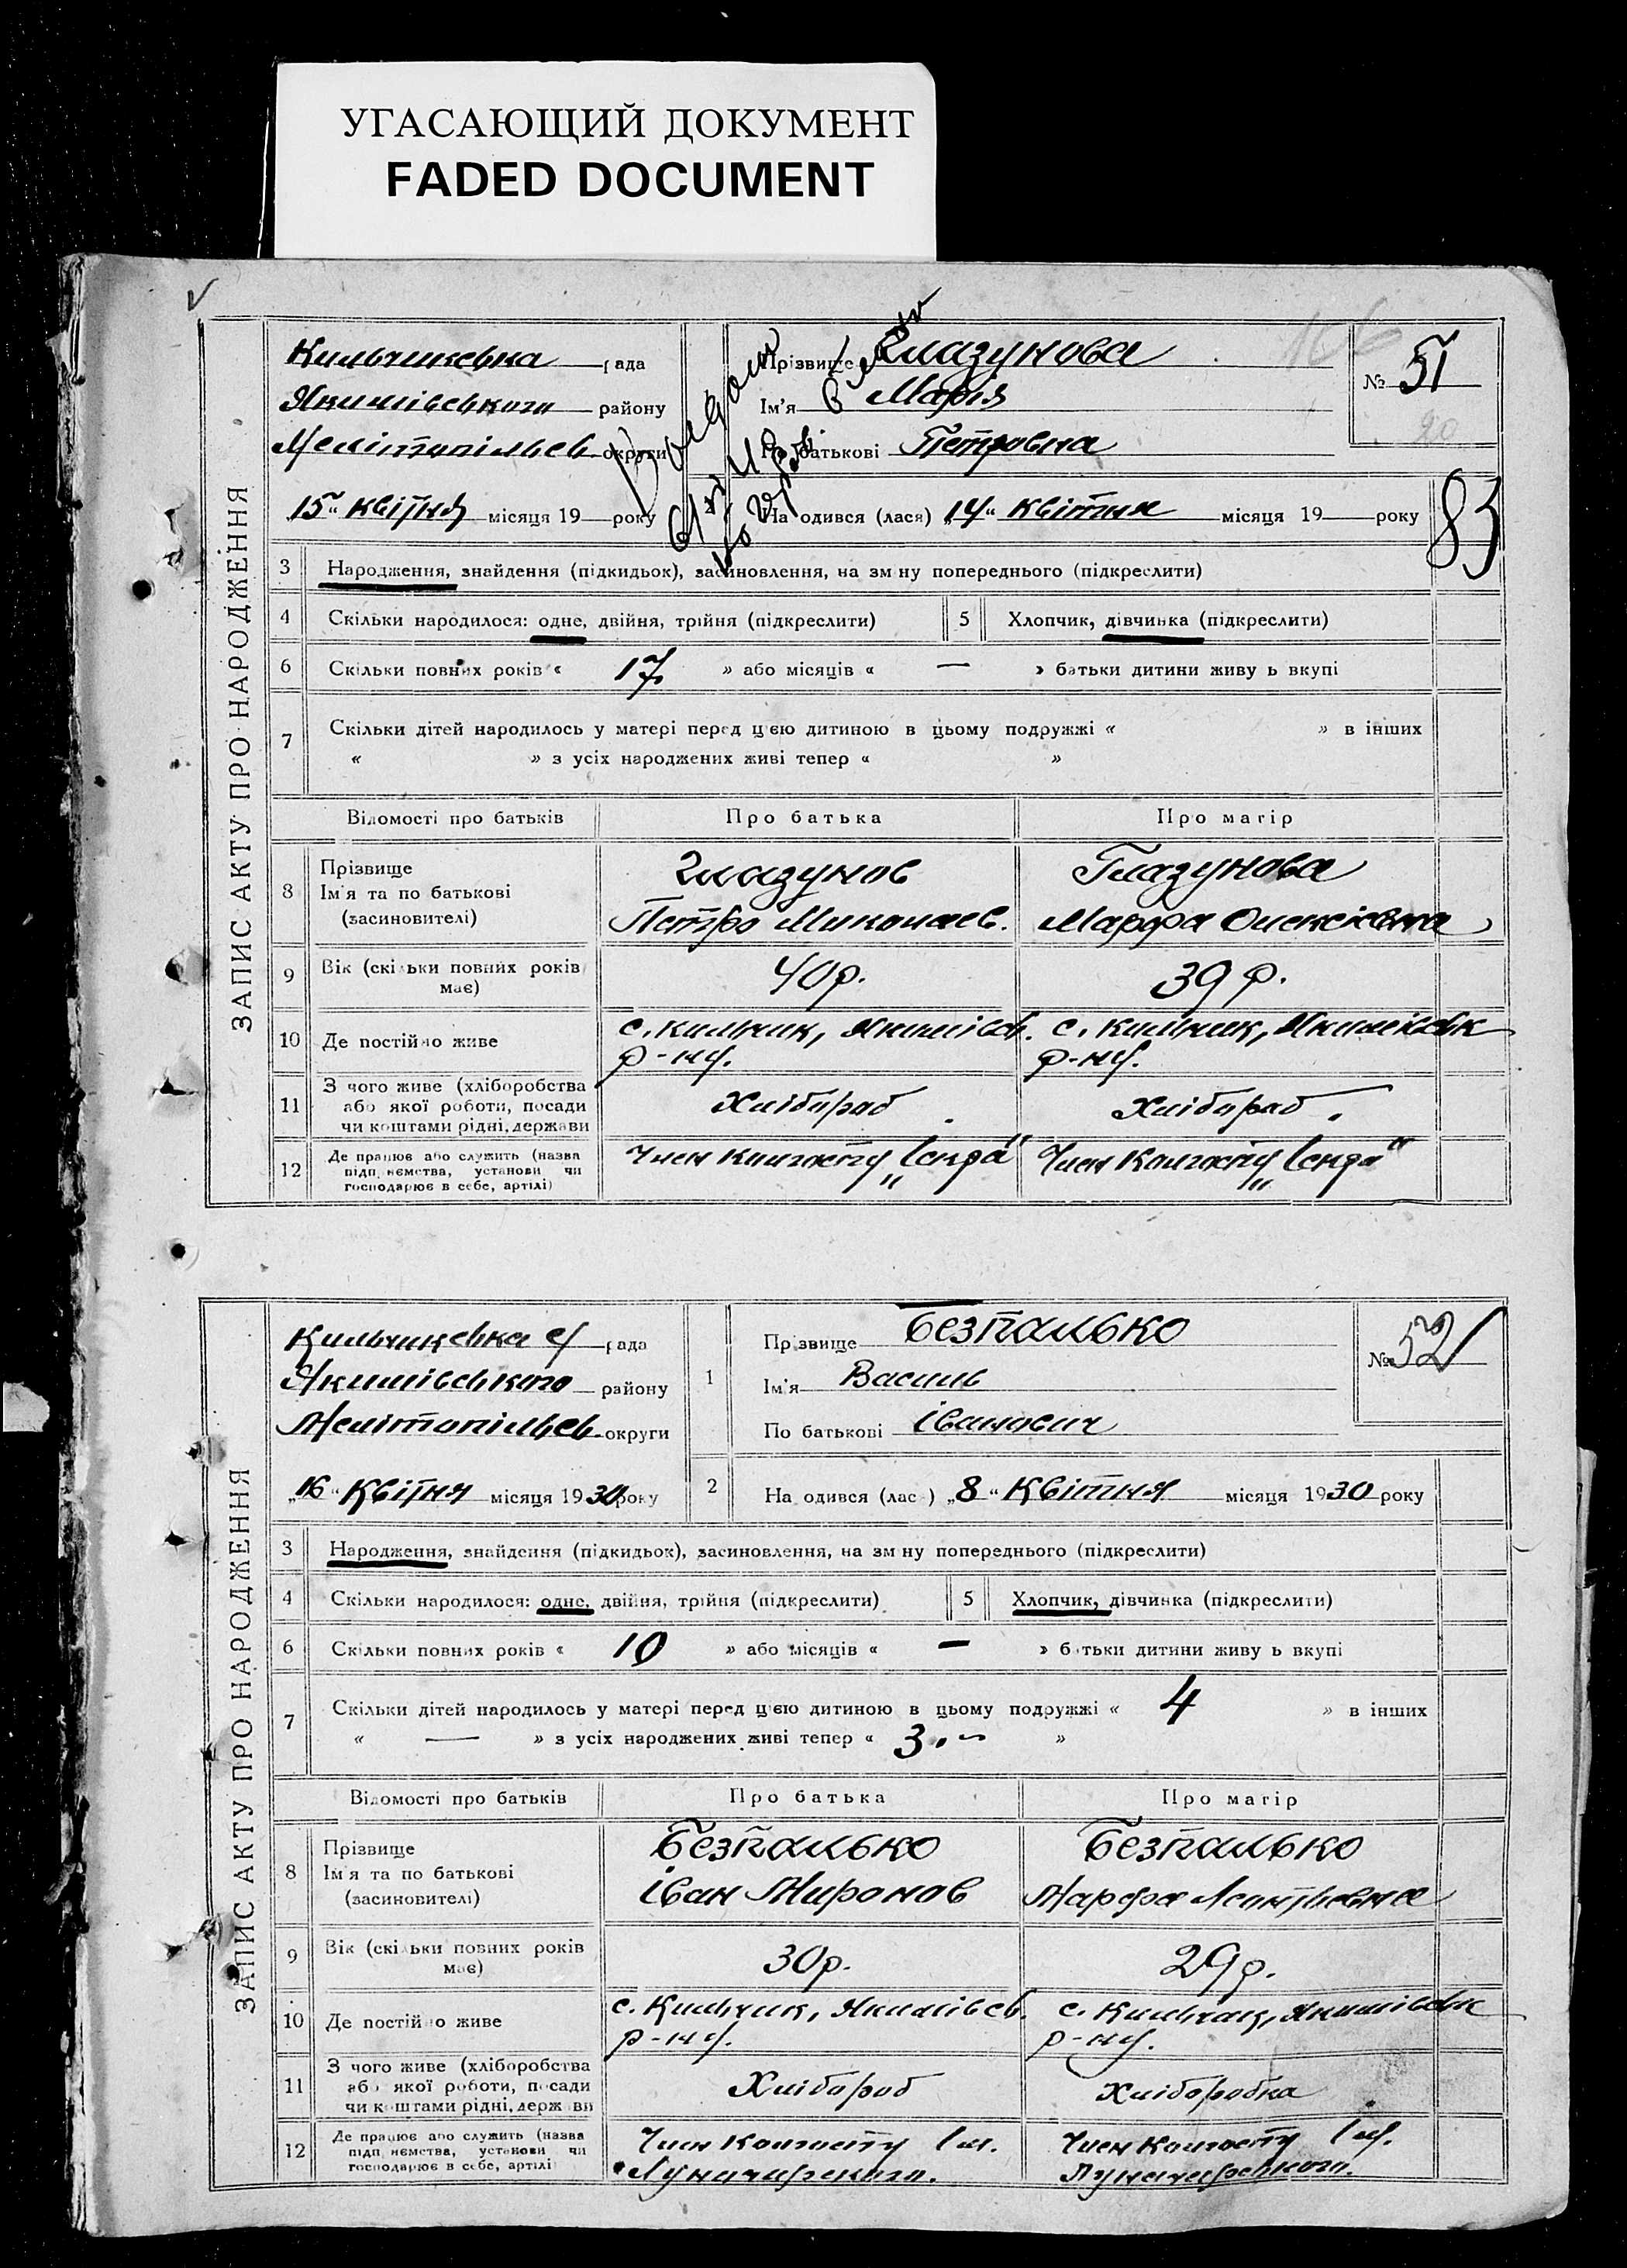 УГАСАЮЩИЙ ДОКУМЕНТ
FADED DOCUMENT
ЗАПИС АКТУ ПРО НАРОДЖЕННЯ
Кильчикевка рада
Якимівського району
Мелітопільсв округи
„15“ квітня місяця 19 року
Прізвище Глазунова
Ім'я Марія
По батькові Петровна
№ 51
На одився (лася) „14“ квітня місяця 19 року
83
3 Народження, знайдення (підкидьок), засиновлення, на зм ну попереднього (підкреслити)
4 Скільки народилося: одне, двійня, трійня (підкреслити) 5 Хлопчик, дівчинка (підкреслити)
6 Скільки повних років « 17 » або місяців « — » батьки дитини живу ь вкупі
7 Скільки дітей народилось у матері перед цією дитиною в цьому подружжі « » в інших
« » з усіх народжених живі тепер « »
Відомості про батьків Про батька Про матір
8 Прізвище Глазунов Глазунова
Ім'я та по батькові
(засиновителі) Петро Миколаєв. Марфа Олексіевна
9 Вік (скільки повних років має) 40 р. 39 р.
10 Де постійно живе с. Кильчик, Якимівсв. р-ну. с. Кильчик, Якимівськ р-ну.
11 З чого живе (хліборобства
або якої роботи, посади Хлібороб Хлібороб.
чи коштами рідні, держави
12 Де працює або служить (назва
підп иємства, установи чи Член колгоспу Член колгоспу
господарює в себе, артілі)
ЗАПИС АКТУ ПРО НАРОДЖЕННЯ
Кильчикевка рада
Якимівського району
Мелітопільсв округи
„16“ Квітня місяця 1930 року
1 Пр звище Безпалько
Ім'я Василь
По батькові Іванович
№ 52
2 На одився (лас ) „8“ Квітня місяця 1930 року
3 Народження, знайдення (підкидьок), засиновлення, на зм ну попереднього (підкреслити)
4 Скільки народилося: одне, двійня, трійня (підкреслити) 5 Хлопчик, дівчинка (підкреслити)
6 Скільки повних років « 10 » або місяців « — » б тьки дитини живу ь вкупі
7 Скільки дітей народилось у матері перед цією дитиною в цьому подружжі « 4 » в інших
« — » з усіх народжених живі тепер « 3 »
Відомості про батьків Про батька Про матір
8 Прізвище Безпалько Безпалько
Ім'я та по батькові
(засиновителі) Іван Миронов Марфа Леонтьевна
9 Вік (скільки повних років має) 30 р. 29 р.
10 Де постійно живе с. Кильчик, Якимівсв. р-ну. с. Кильчик, Якимівськ р-ну.
11 З чого живе (хліборобства
або якої роботи, посади Хлібороб Хлоборобка
чи коштами рідні, держ ви
12 Де працює або служить (назва
підп иємства, установи чи Член колгоспу ім. Член колгоспу ім.
господарює в себе, артілі Луначарского. Луначарского.